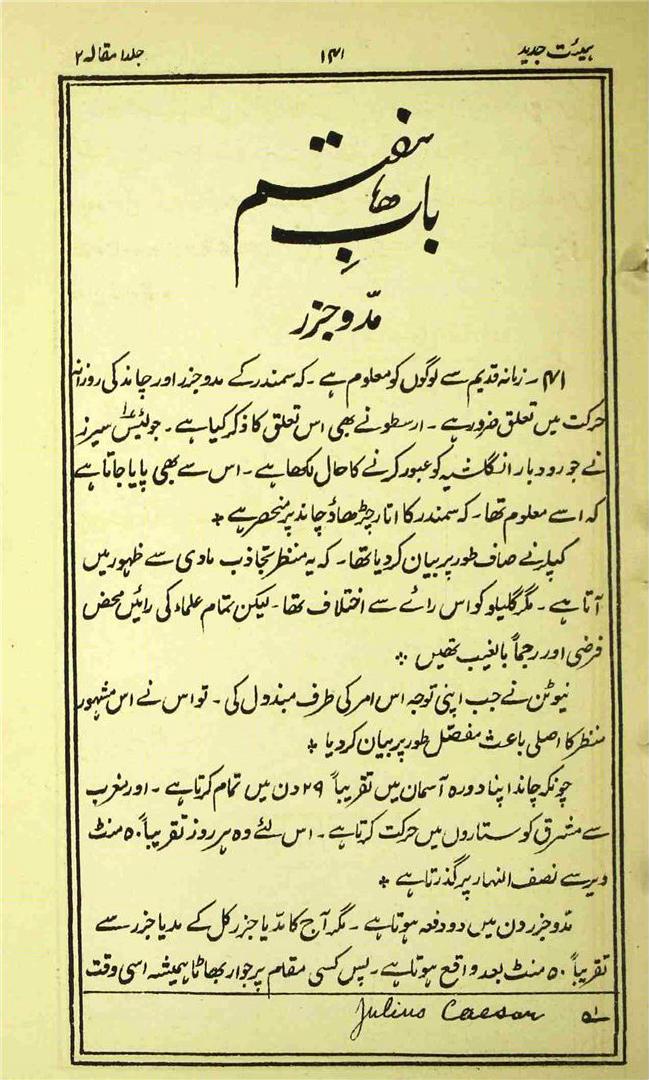 ہیئت جدید ۱۴۱ جلد۱ مقالہ ۲
بابِ ہفتم
مدّوجزر
۱۴۱ ۔ زمانہ قدیم سے لوگوں کو معلوم ہے ۔ کہ سمندر کے مدوجزر اور چاند کی روزانہ
حرکت میں تعلق ضرور ہے ۔ ارسطو نے بھی اس تعلق کا ذکر کیا ہے ۔ جولیئس سیزر
نے جو رودبار انگلشیہ کو عبور کرنے کا حال لکھا ہے ۔ اس سے بھی پایا جاتا ہے
کہ اسے معلوم تھا ۔ کہ سمندر کا اتار چڑھاؤ چاند پر منحصر ہے ٭
کپلر نے صاف طور پر بیان کر دیا تھا ۔ کہ یہ منظر تجاذب مادی سے ظہور میں
آتا ہے ۔ مگر گلیلو کو اس رائے سے اختلاف تھا ۔ لیکن تمام علماء کی رائیں محض
فرضی اور رجماً بالغیب تھیں ٭
نیوٹن نے جب اپنی توجہ اس امر کی طرف مبذول کی ۔ تو اس نے اس مشہور
منظر کا اصلی باعث مفصّل طور پر بیان کر دیا ٭
چونکہ چاند اپنا دورہ آسمان میں تقریباً ۲۹ دن میں تمام کرتا ہے ۔ اور مغرب
سے مشرق کو ستاروں میں حرکت کرتا ہے ۔ اس لئے وہ ہر روز تقریباً ۵۰ منٹ
دیر سے نصف النہار پر گذرتا ہے ٭
مدّوجزر دن میں دو دفعہ ہوتا ہے ۔ مگر آج کا مدّ یا جزر کل کے مد یا جزر سے
تقریباً ۵۰ منٹ بعد واقع ہوتا ہے ۔ پس کسی مقام پر جوار بھاٹا ہمیشہ اسی وقت
Julius Caesar